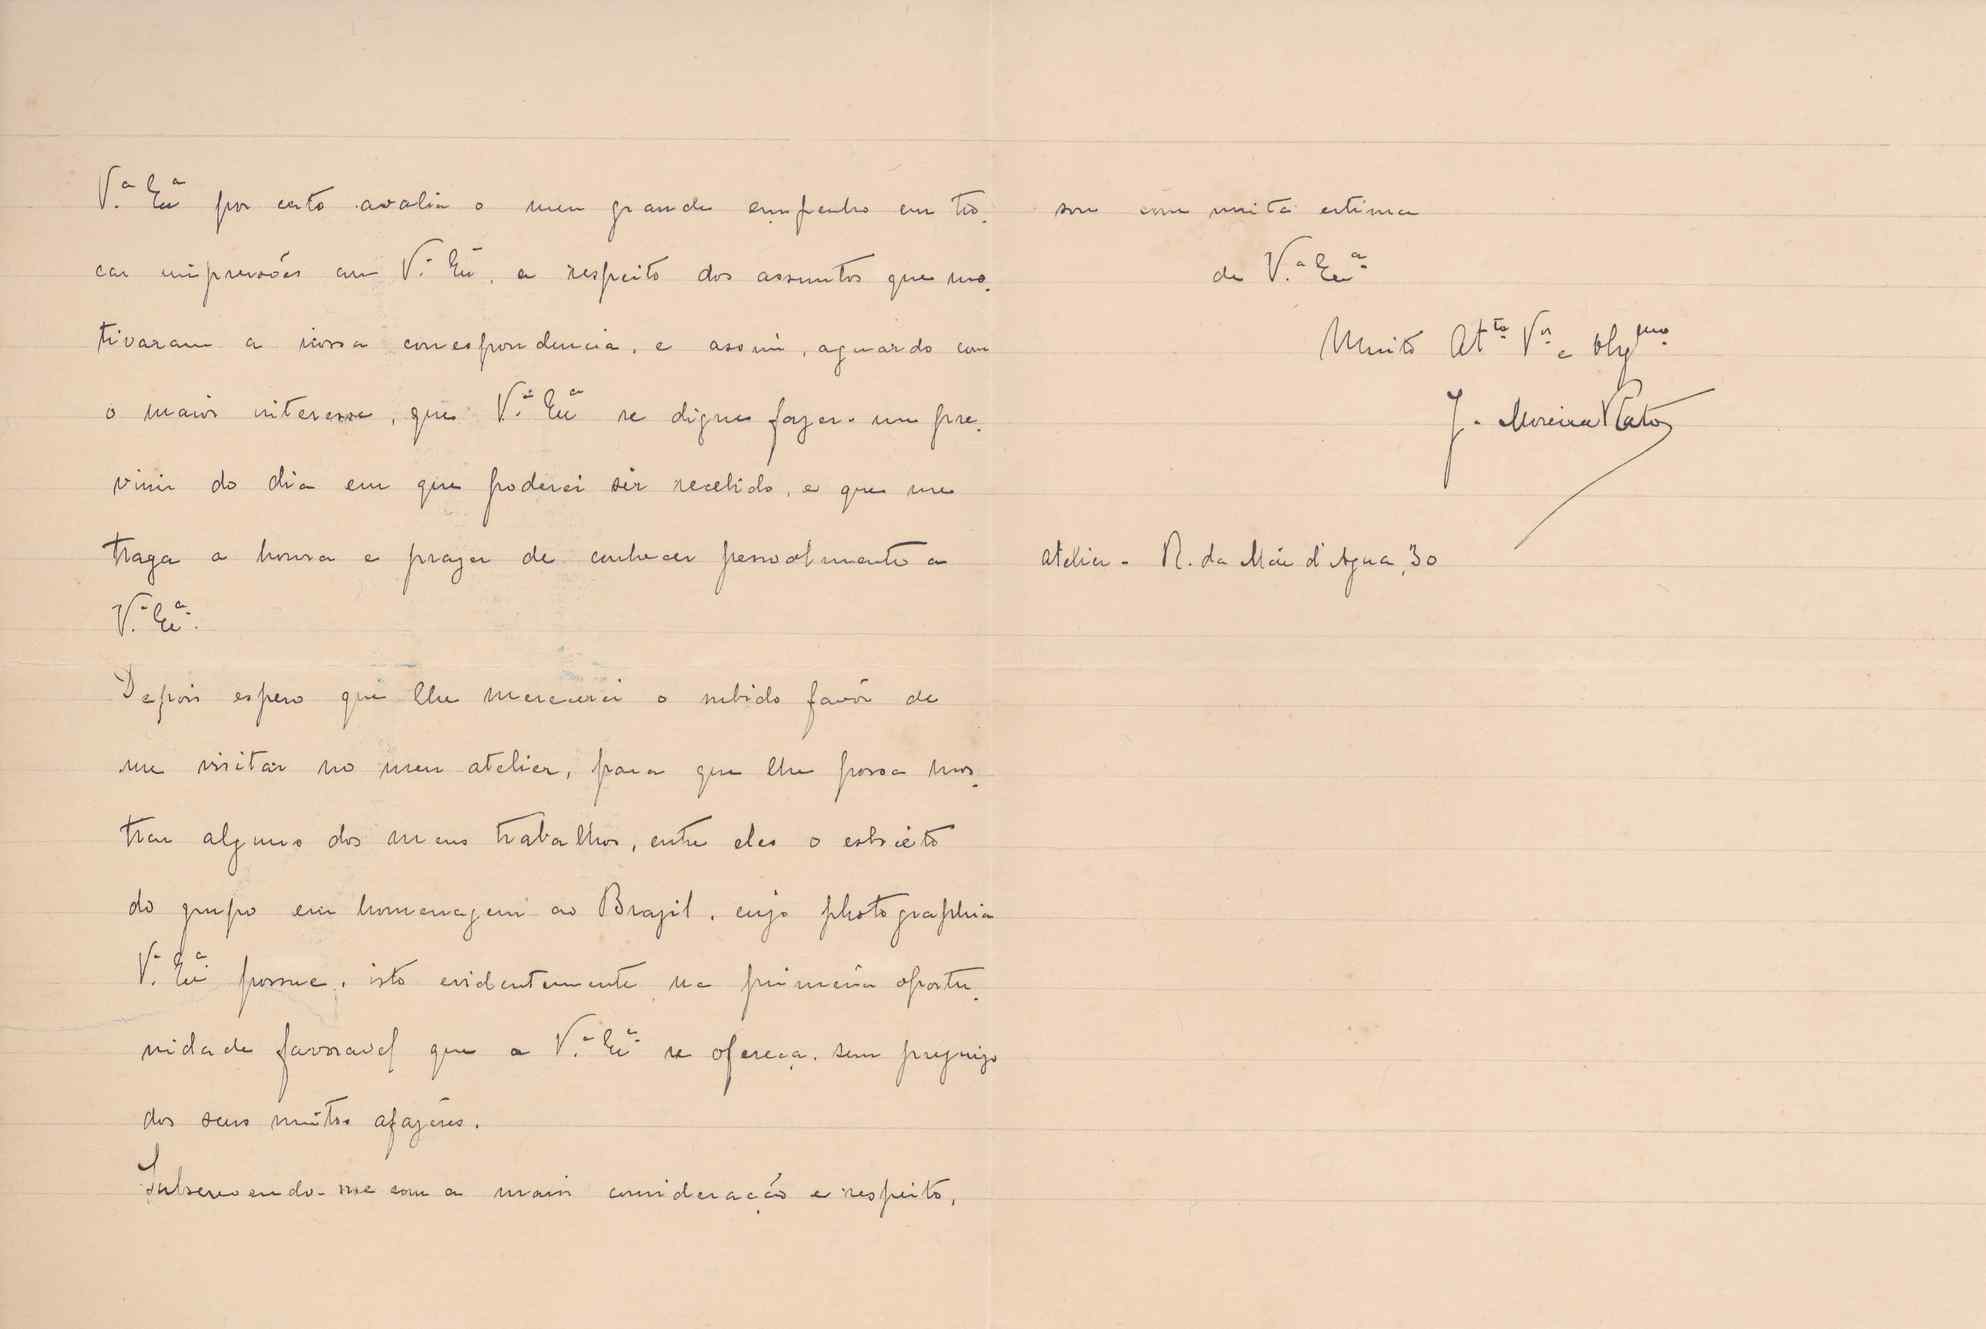 V.ª Exª por certo avalia o meu grande empenho em tro-
car impressões com V.ª Exª, a respeito dos assuntos que mo-
tivaram a nossa correspondencia, e assim, aguardo com
o maior interesse, que V.ª Exª se digne fazer-me pre-
vinir do dia em que poderei ser recebido, e que me
traga a honra e prazer de conhecer pessoalmente a
V.ª Exª.
Depois espero que lhe merecerei o subido favôr de
me visitar no meu atelier, para que lhe possa mos-
trar alguns dos meus trabalhos, entre eles o esbocêto
do grupo em homenagem ao Brazil, cujo photographia
V.ª Exª possue, isto evidentemente na primeira oportu-
nidade favoravel que a V.ª Exª se ofereça, sem prejuizo
dos seus muitos afazeres.
Subscrevendo-me com a maior consideração e respeito,
sou com muita estima
de V.ª Exª
Muito Att.º V.or e Obg.mo
J. Moreira Rato
atelier - R. da Mãe d'Agua, 30